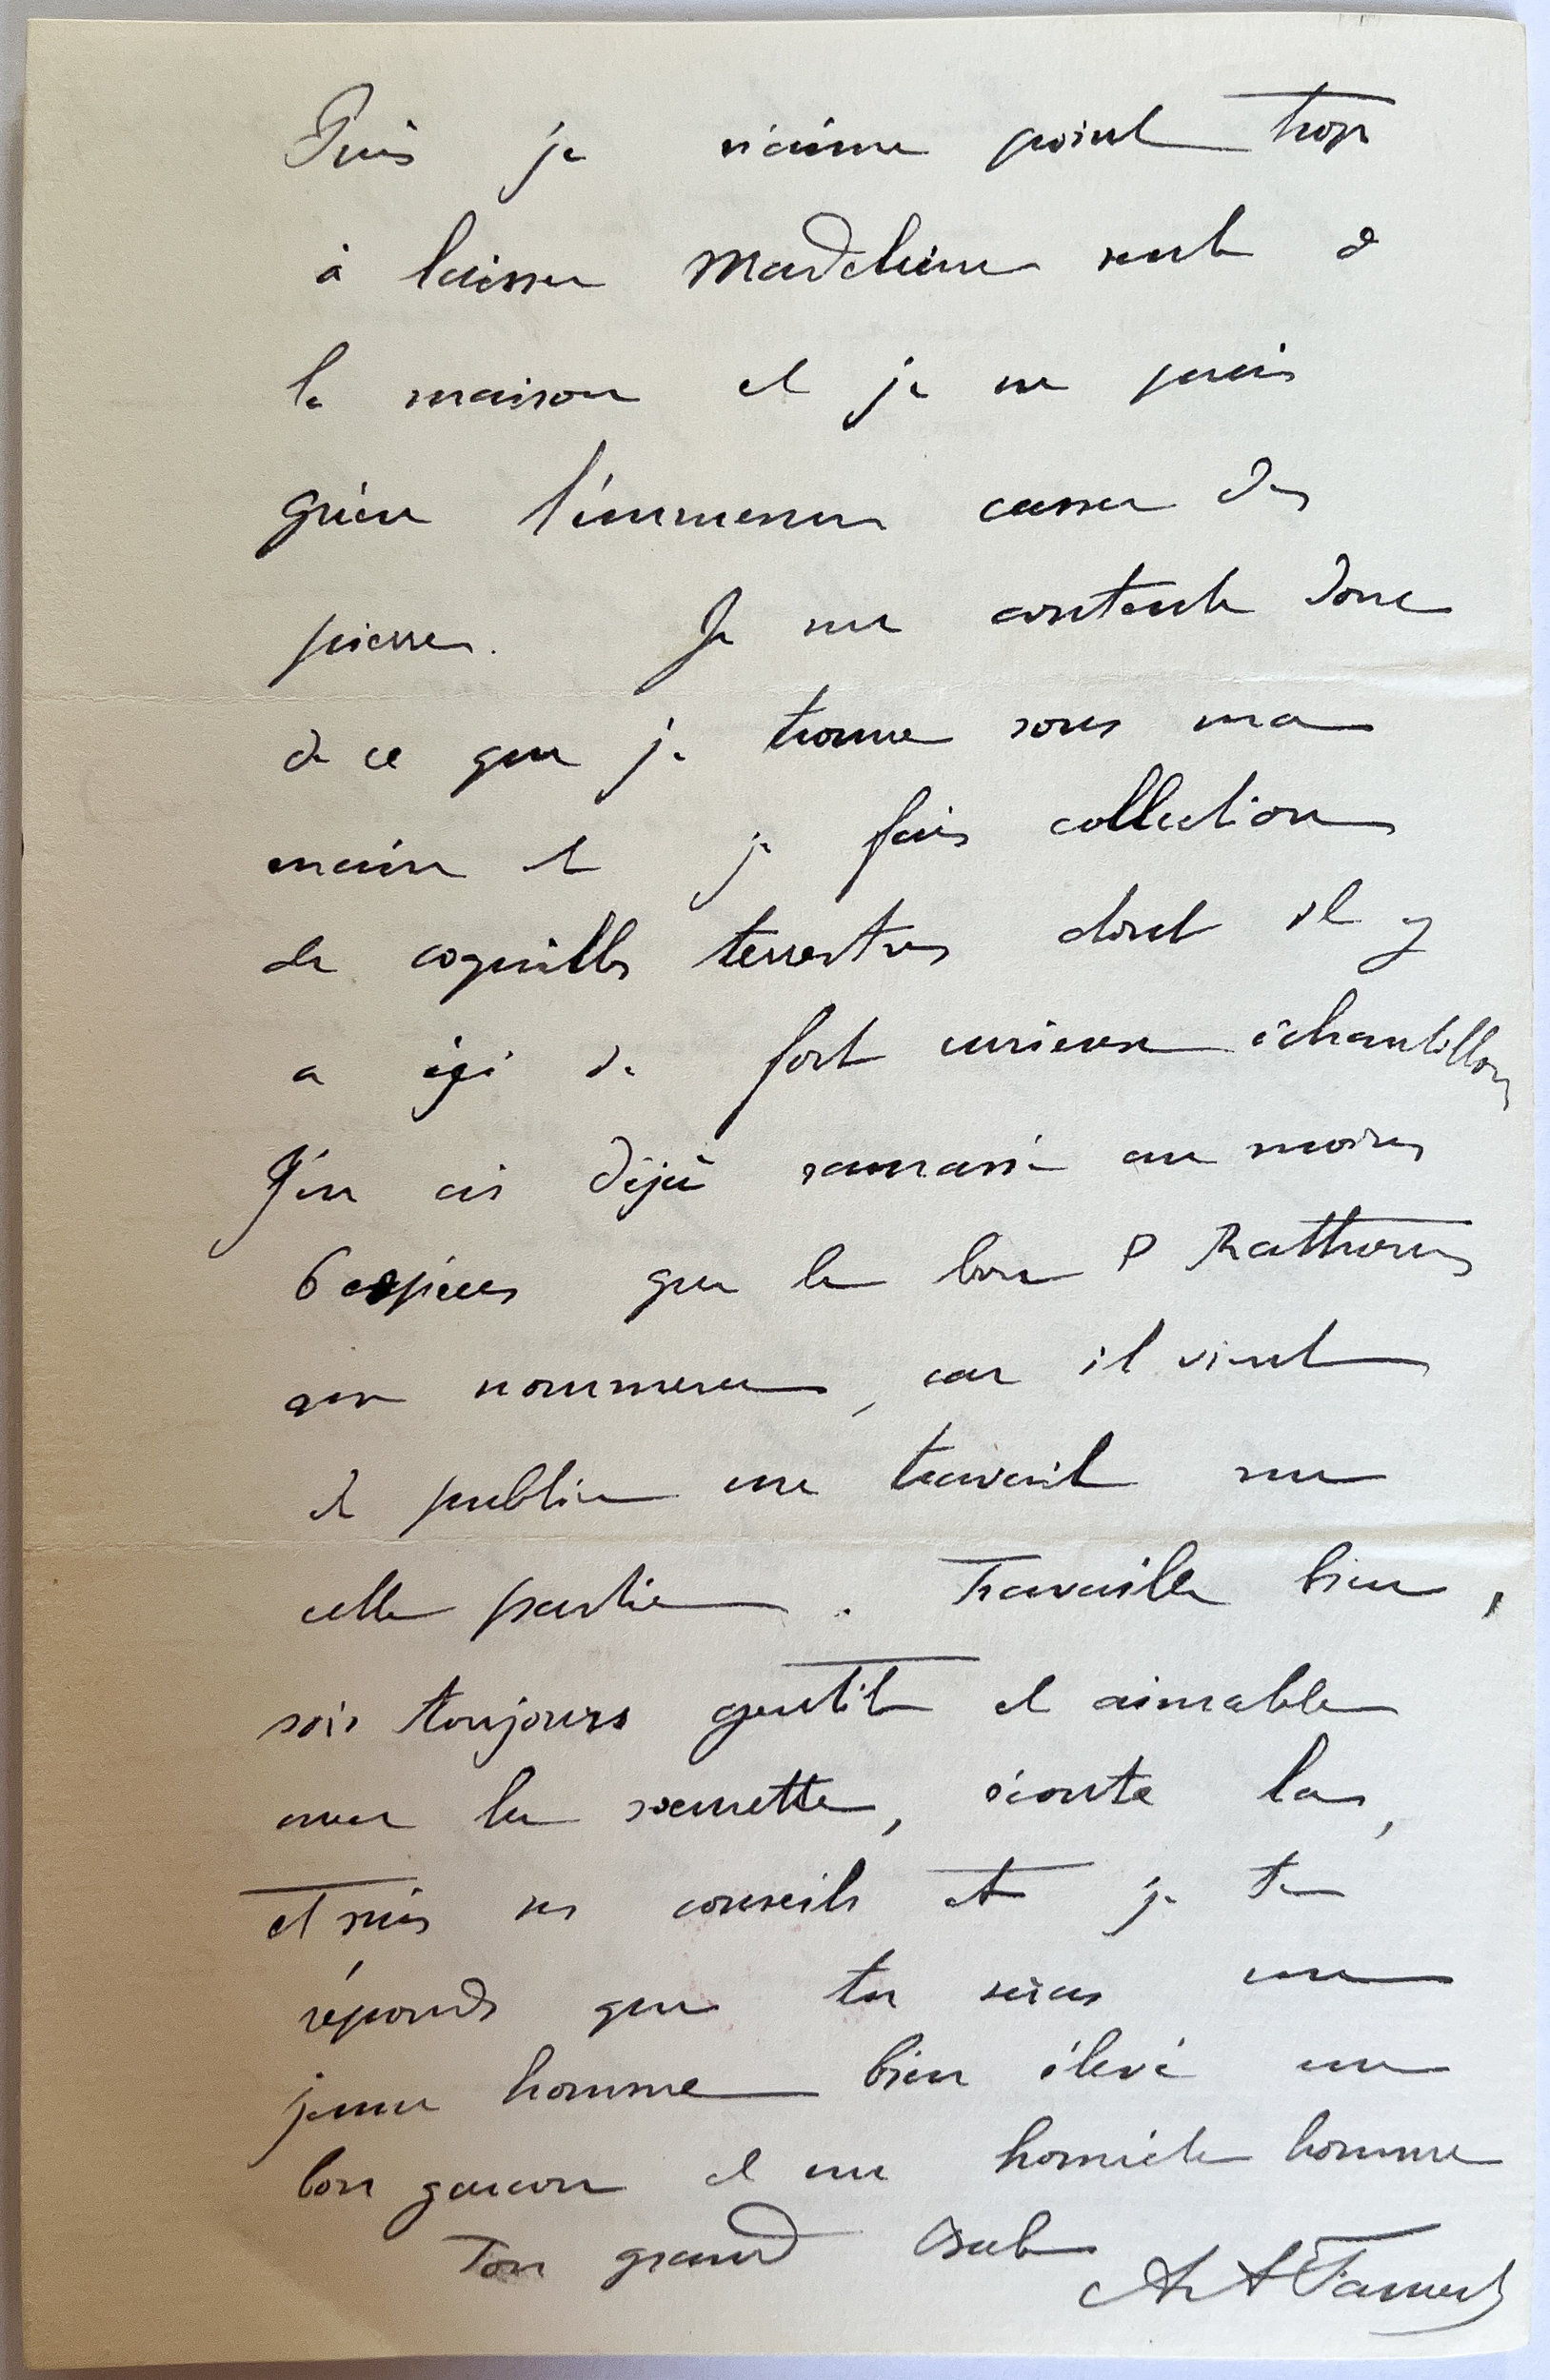 Puis je n'aime point trop
à laisser Madeleine seule à
la maison et je ne puis
guère l'emmener casser des
pierres. Je me contente donc
de ce que je trouve sous ma
main et je fais collection
de coquilles terrestres dont il y
a ici de fort curieux échantillons
J'en ai déjà ramassé au moins
6 espèces que le bon P
me nommera, car il vient
de publier un travail sur
cette partie. Travaille bien,
sois toujours gentil et aimable
avec la sœurette, écoute la,
et suis ses conseils et je te
réponds que tu seras un
jeune homme bien élevé un
bon garçon et un honnête homme
Ton grand